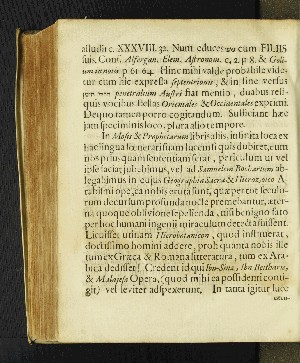 alludit c. XXXVIII. 32. Num educes cum FILIIS
suis. Conf. Alfergan. Elem. Astronom. c. 2. p. 8. & Goli-
um in not. p. 61. 64. Hinc mihi valde probabile vide-
tur cum hic expressa septentrionis, & in fine versus
penetralium Austri fiat mentio, duabus reli-
quis vocibus stellas Orientales & Occidentales exprimi.
De quo tamen porro cogitandum. Sufficiant hæc
jam speciminis loco, plura alio tempore.
In Mosis & Prophetarum libris aliis, infinita loca ex
hac lingua fœnerari suam lucem si quis dubiret, cum
nos prius quam sententiam ferat, periculum ut vel
ipse faciat jubebimus, vel ad Samuelem Bochartum ab-
legabimus in cujus Geographia Sacra & Hierozoico A-
rabismi ope, ea nobis eruta sunt, quæ per tot seculo-
rum decursum profunda nocte premebantur, æter-
na quoque oblivione sepelienda, nisi benigno fato
per hoc humani ingenii miraculum detecta fuissent.
Licuisset utinam Hierobotanicon, quod instituerat,
doctissimo homini addere, proh quanta nobis ille
tum ex Græca & Romana litteratura, tum ex Ara-
bica dedisset! Credent id qui Ibn-Sina, Ibn Beitharis,
& Malajesa Opera, (quod mihi ea possidenti conti-
git) vel leviter adspexerunt. In tanta igitur luce